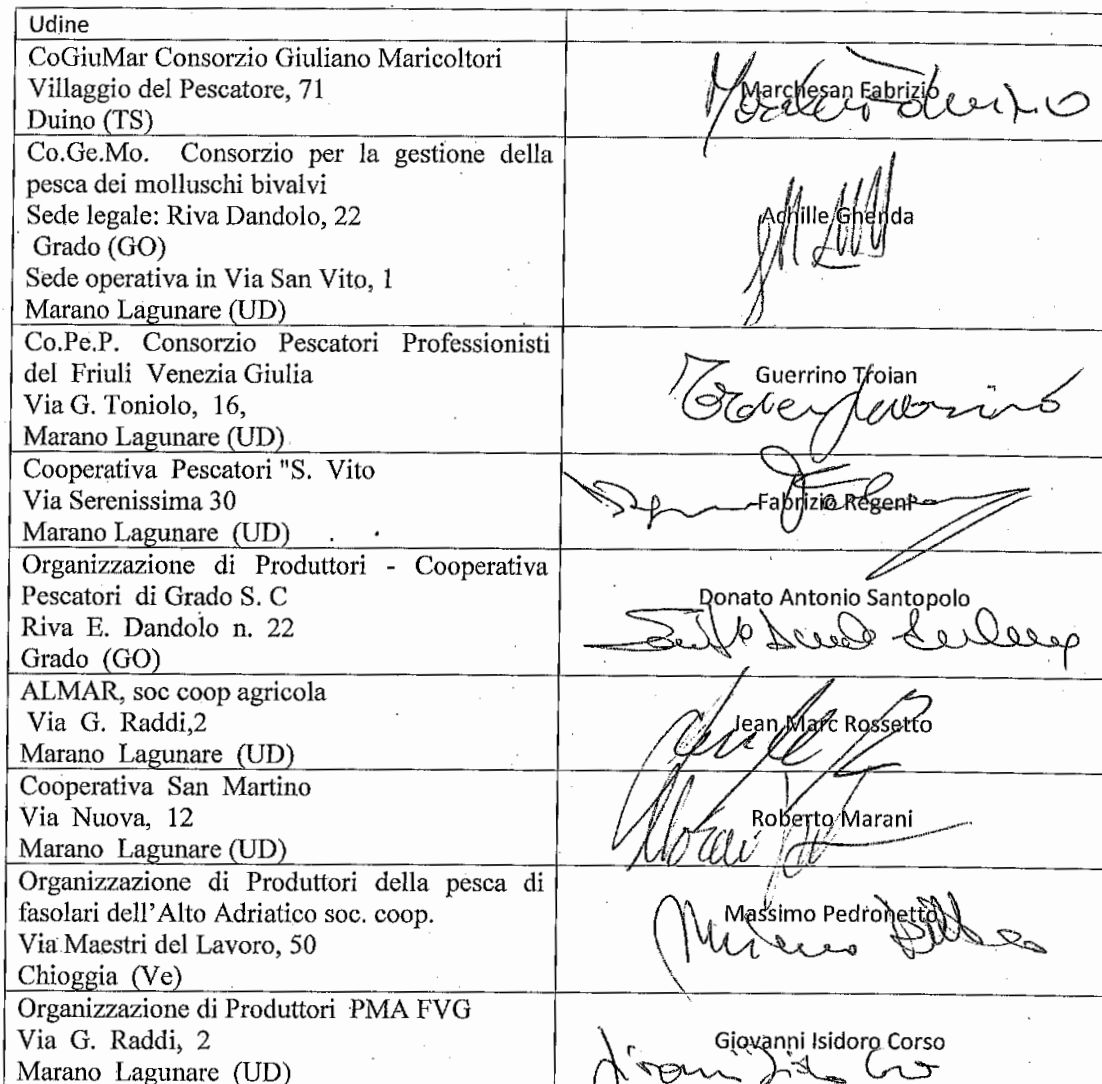 Udine
CoGiuMar Consorzio Giuliano Maricoltori
Villaggio del Pescatore, 71
Duino (TS)
Marchesan Fabrizio
Co.Ge.Mo. Consorzio per la gestione della
pesca dei molluschi bivalvi
Sede legale: Riva Dandolo, 22
Grado (GO)
Sede operativa in Via San Vito, 1
Marano Lagunare (UD)
Achille Ghenda
Co.Pe.P. Consorzio Pescatori Professionisti
del Friuli Venezia Giulia
Via G. Toniolo, 16,
Marano Lagunare (UD)
Guerrino Troian
Cooperativa Pescatori "S. Vito
Via Serenissima 30
Marano Lagunare (UD)
Fabrizio Regeni
Organizzazione di Produttori - Cooperativa
Pescatori di Grado S. C
Riva E. Dandolo n. 22
Grado (GO)
Donato Antonio Santopolo
ALMAR, soc coop agricola
Via G. Raddi,2
Marano Lagunare (UD)
Jean Marc Rossetto
Cooperativa San Martino
Via Nuova, 12
Marano Lagunare (UD)
Roberto Marani
Organizzazione di Produttori della pesca di
fasolari dell'Alto Adriatico soc. coop.
Via Maestri del Lavoro, 50
Chioggia (Ve)
Massimo Pedronetto
Organizzazione di Produttori PMA FVG
Via G. Raddi, 2
Marano Lagunare (UD)
Giovanni Isidoro Corso